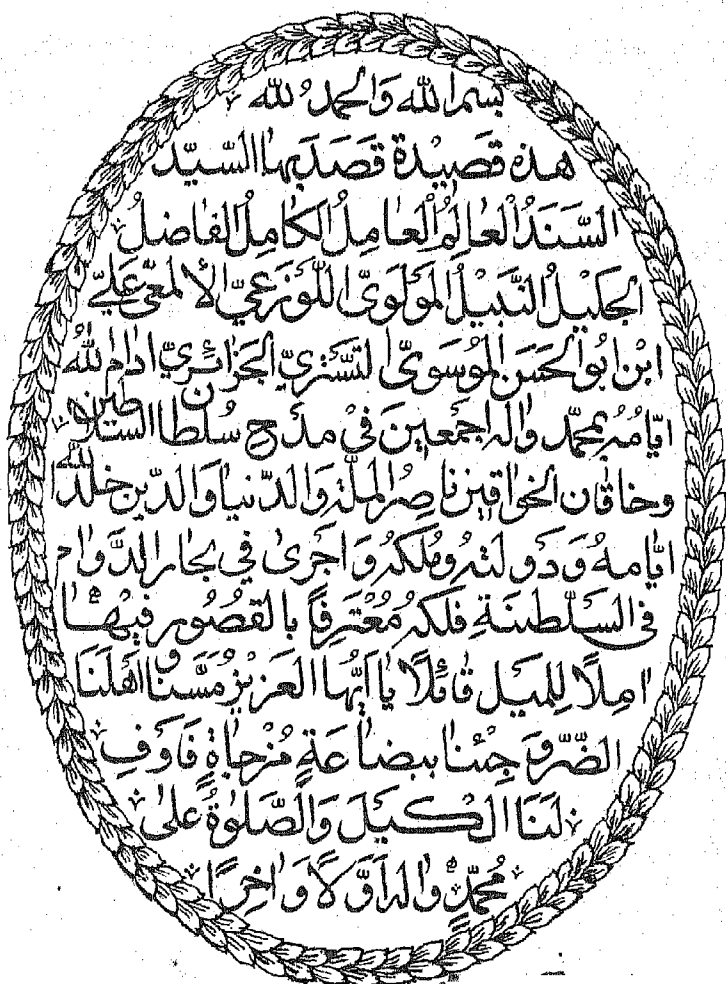 بسم الله وَالحمدُ لله
هذه قصَيدة قصَدَ بها السَّيّد
السَّنَدُ العٰالِمُ العٰامِلُ الكٰامِلُ الفٰاضلُ
الجَليْلُ النَّبيْلُ المَوْلَوىّ اللَّوْزَعيّ الألمَعّى عَليّ
ابْن ابُو الحَسَن المُوسَوىّ التّسْتَريّ الجَزٰائريّ ادٰام لله
ايّٰامهُ بمحمّد وٰاله اجمَعينَ فيْ مدْح سُلطان السّلاطين
وخاقٰان الخوٰاقين ناصِر الملّة وَالدّنيا وَالدّين خلّد الله
ايّٰامهُ وَدَولتهُ ومُلكَهُ وَاجرَى في بحار الدَّوٰام
فى السَلْطنَةِ فلكهُ مُعْتَرفًا بالقصُور فيْهٰا
اٰمِلًا لِلميَل قٰائلًا يٰا ايّهٰا العَزيْز مَسَّنَا وَاهْلَنَا
الضّرّ وَجئنا ببضاعَةٍ مُزجاةٍ فاَوفِ
لنَا الكيَلَ وَالصَّلوٰةُ عَلىٰ
مُحمّدٍ وٰاله اوَّلًا وَاٰخِرًا